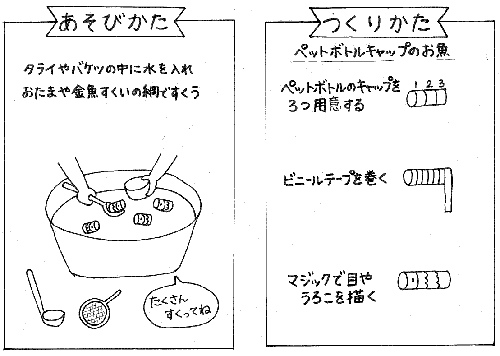 あそびかた
タライやバケツの中に水を入れ
おたまや金魚すくいの網ですくう
たくさん
すくってね
つくりかた
ペットボトルキャップのお魚
ペットボトルのキャップを
3つ用意する
1 2 3
ビニールテープを巻く
マジックで目や
うろこを描く